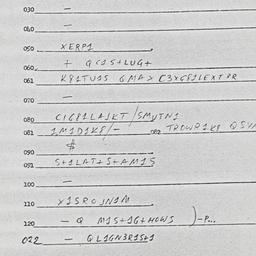 030 —
040 —
050 XERP1
060 + QC1S+LUG+
061 K81TU1S 6MA> C3XG81LEXT8R
070 —
080 C1G81LA1KT/SMUTN1
081 1M1D1K8/— 082 TROWR1K8
$
090
091 S+1LAT+S+AM1S
100 —
110 X1SROJN1M
120 — Q M1S+1G+HOWS )-P...
022 — QL1GN3R1S+1